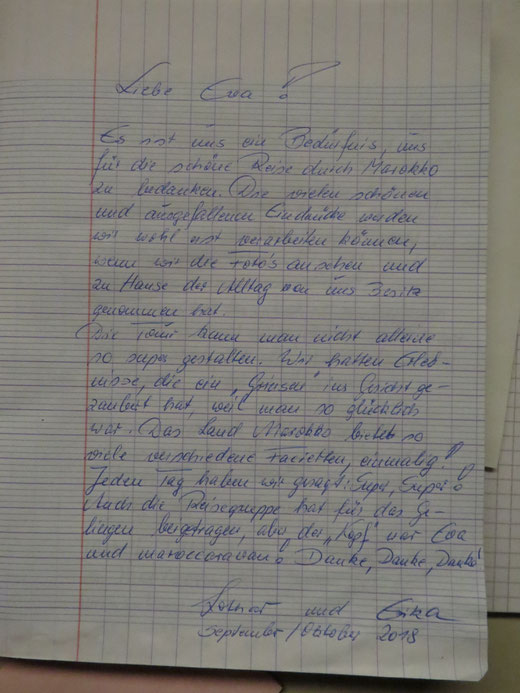 Liebe Eva!
Es ist uns ein Bedürfnis, uns
für die schöne Reise durch Marokko
zu bedanken. Die vielen schönen
und ausgefallenen Eindrücke werden
wir wohl erst verarbeiten können,
wenn wir die Foto's ansehen und
zu Hause der Alltag von uns Besitz
genommen hat.
Die Tour kann man nicht alleine
so super gestalten. Wir hatten Erleb-
nisse, die ein „Grinsen" ins Gesicht ge-
zaubert hat, weil man so glücklich
war. Das Land Marokko bietet so
viele verschiedene Facetten, einmalig!!
Jeden Tag haben wir gesagt: Super, Super!
Auch die Reisegruppe hat für das Ge-
lingen beigetragen, aber der „Kopf" war Eva
und maroccaravan! Danke, Danke, Danke!
Lothar und Erika
September/Oktober 2018